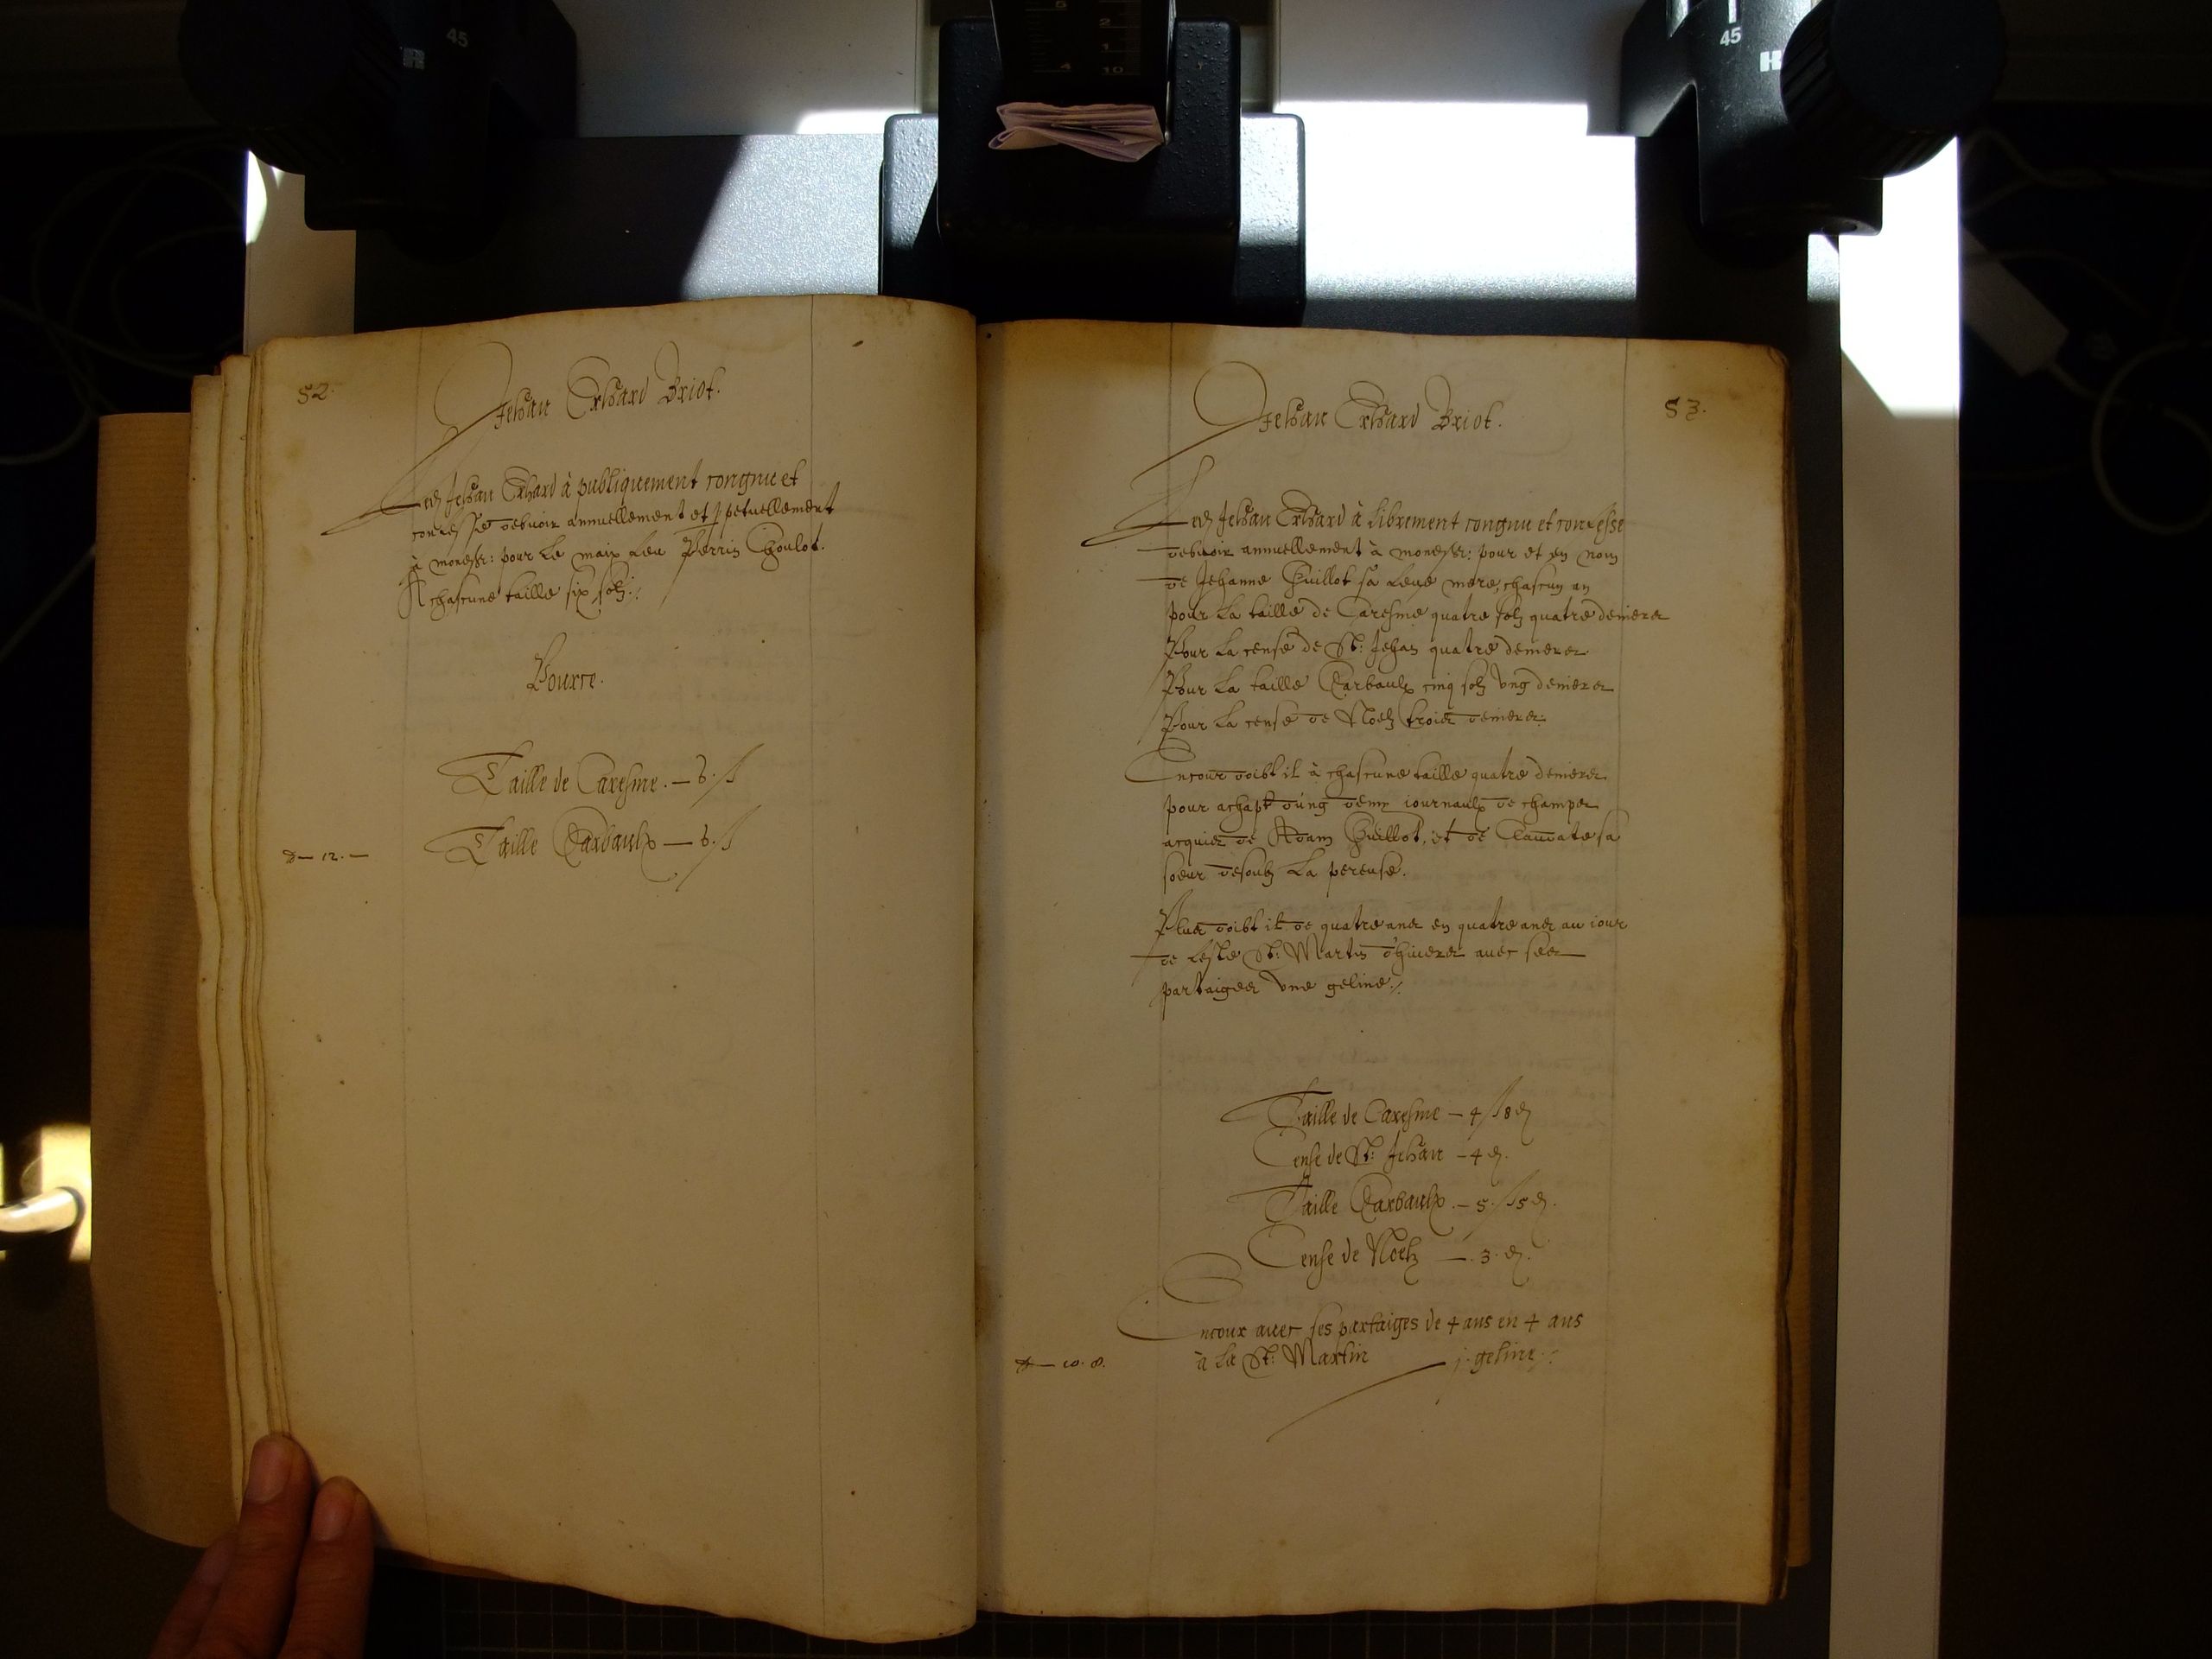 52.
Jehan Erhard Briot.
Led Jehan Erhard à publiquement congnu et
confessé debuoir annuellement et ppetuellement
à monssr: pour le maix leu Perrin Choulot.
A chascune taille six solz:
Pource.
Taille de Caresme. — 6. s
Taille Carbaulx — 6. s
— 12. —
53.
Jehan Erhard Briot.
Led Jehan Erhard à librement congnu et confesse
debuoir annuellement à monssr: pour et en nom
de Jehanne Guillot sa leue mere, chascun an
pour la taille de Caresme quatre solz quatre deniers
Pour la cense de St: Jehan quatre deniers
Pour la taille Carbaulx cinq solz vng deniers
Pour la cense de Noelz trois deniers.
Encour doibt il à chascune taille quatre deniers
pour achapt dúng demy iournaulx de champs
acquis de Adam Guillot, et de Clauate sa
soeur desoulz la pereuse.
Plus doibt il de quatre ans en quatre ans au iour
de feste St: Martin d'hiuers auec sees
partaiges vne geline.
Taille de Caresme — 4 s 8 d
Cense de St: Jehan — 4 d.
Taille Carbaulx. — 5. s 5 d.
Cense de Noelz — 3. d.
Encour auec ses partaiges de 4 ans en 4 ans
à la St: Martin — j. geline.
— 10. 8.
45
45